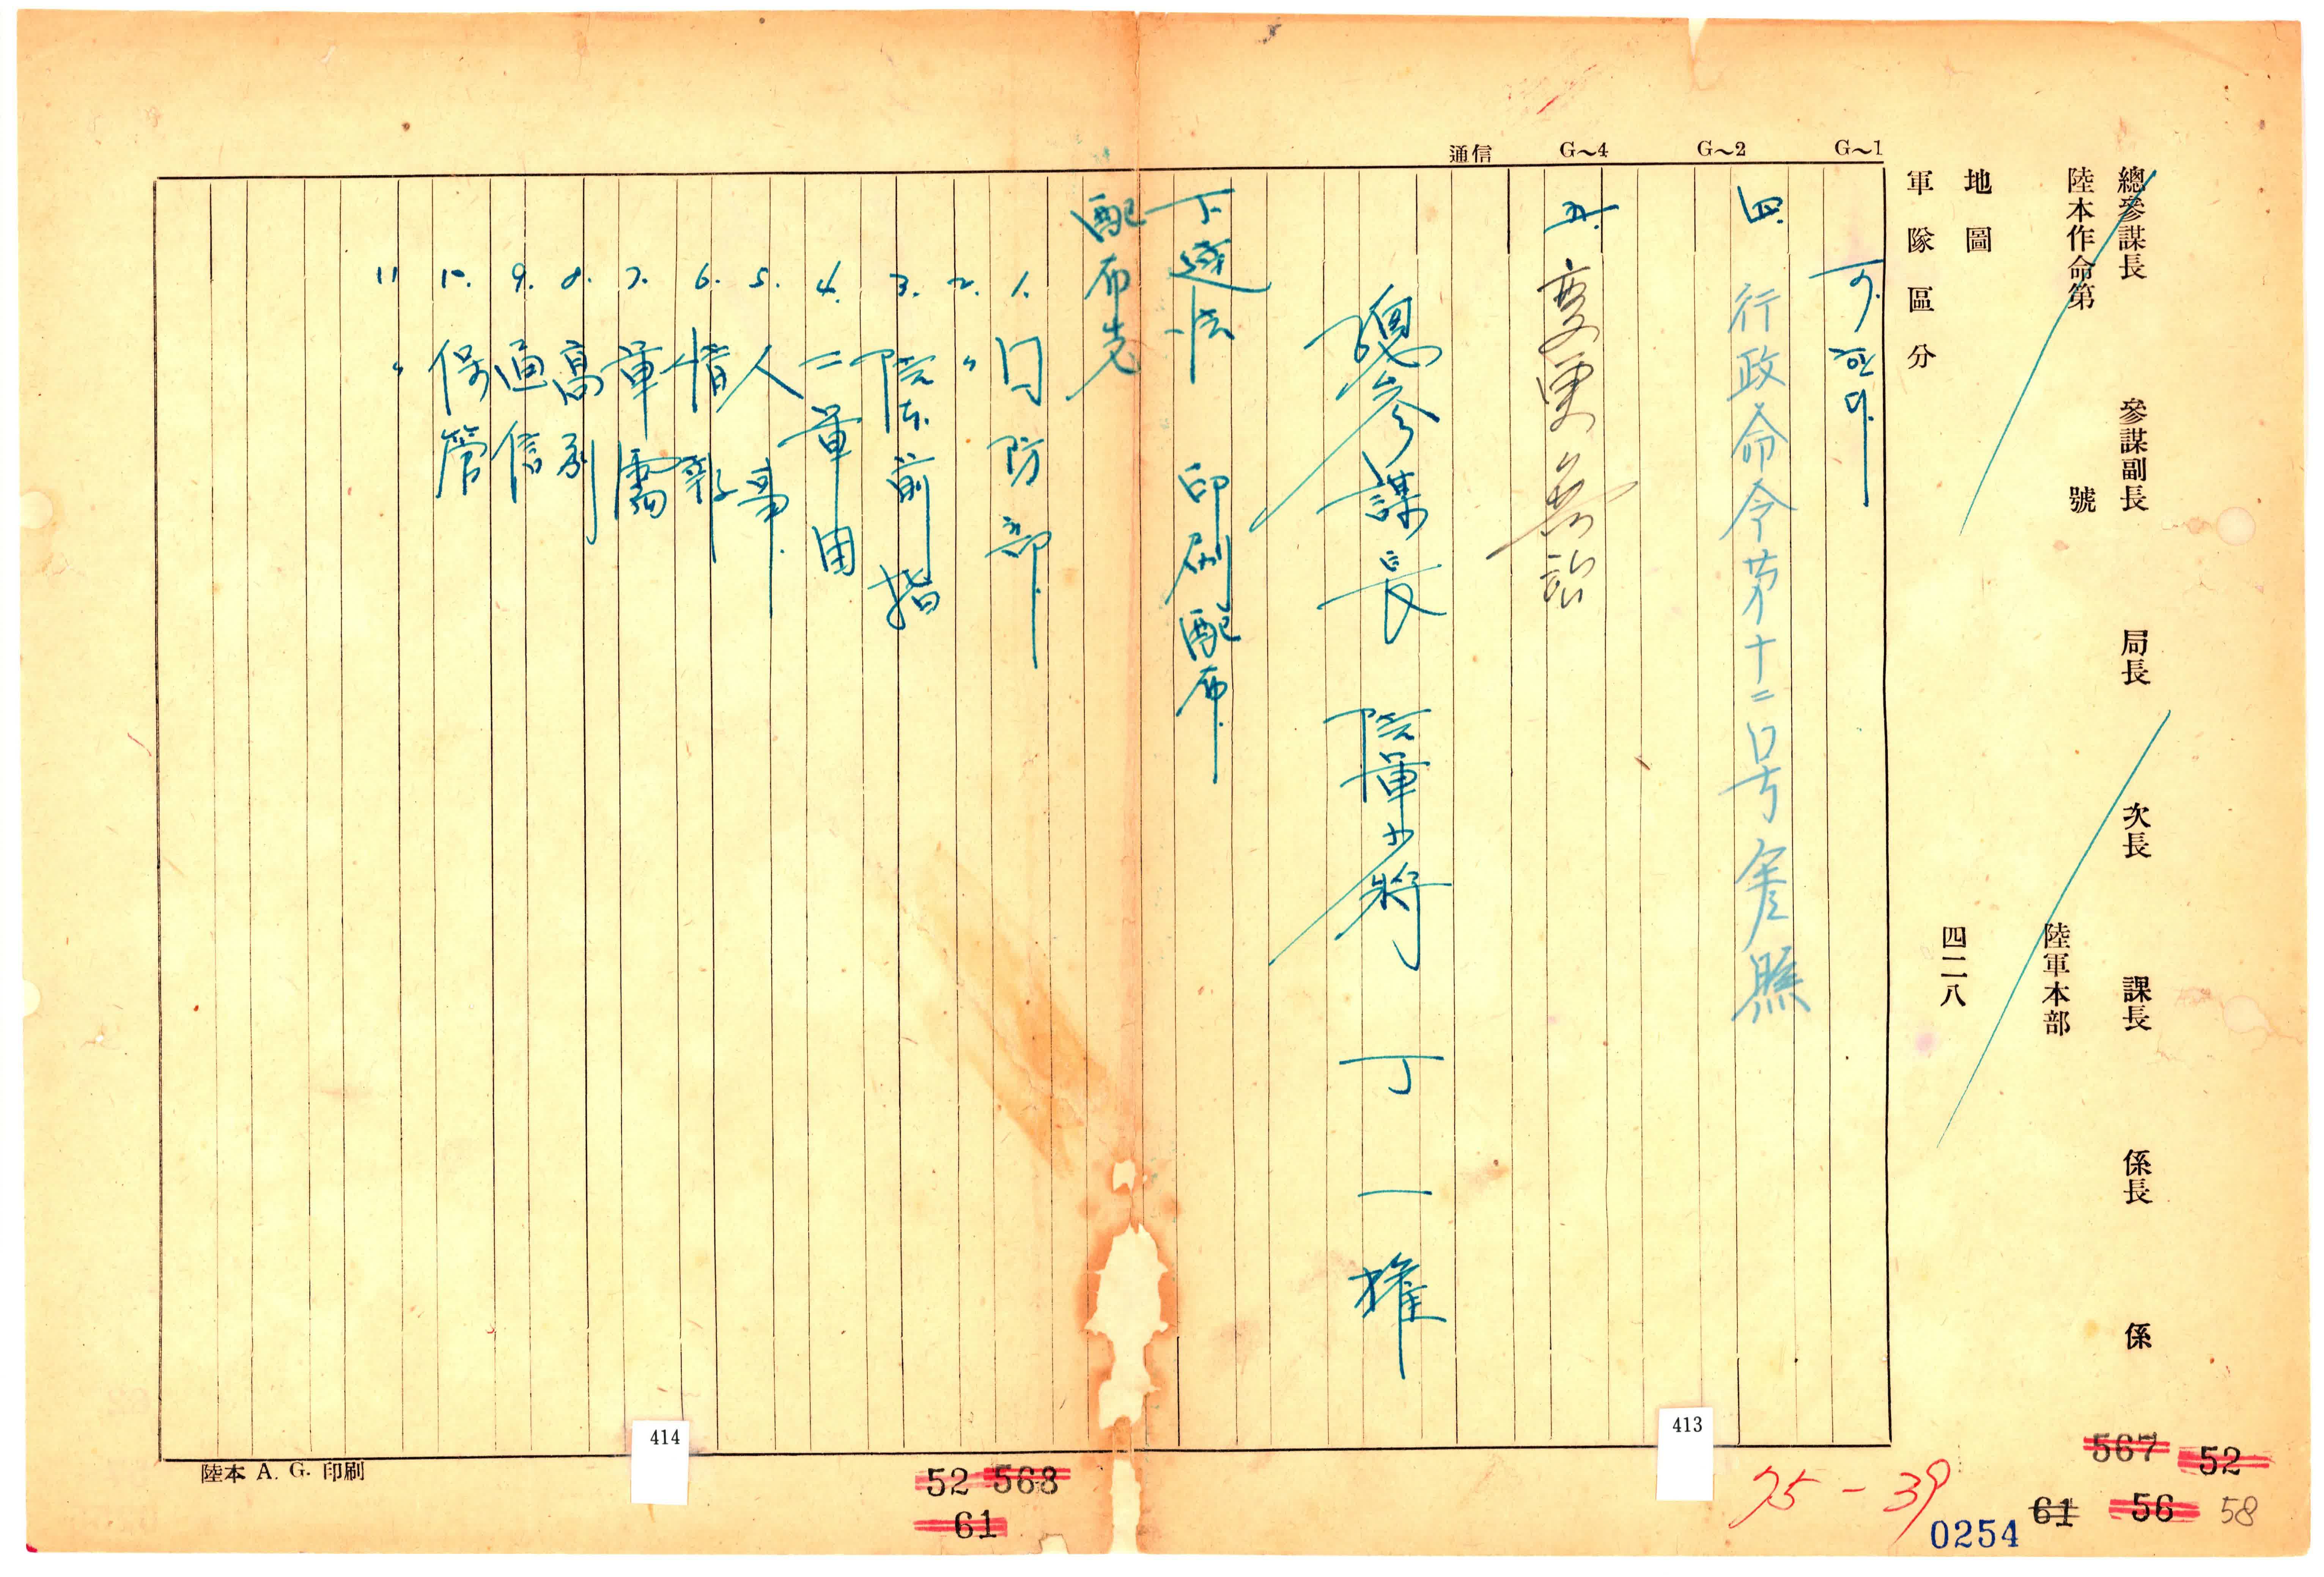 總參謀長 參謀副長 局長 次長 課長 係長 係
陸本作命第 號
陸軍本部
地圖
四二八
軍隊區分
G~1
G~2
G~4
通信
可한다.
四. 行政命令第十二号参照
五. 変更無詔
總參謀長 陸軍少將 丁一權
下達法 印刷配布.
配布先
1. 国防部.
2. 〃
3. 陸本前指
4. 二軍団
5. 人事.
6. 情報
7. 軍需
8. 高副
9. 通信
10. 保管
11 〃
陸本 A. G. 印刷
414
413
52 568
61
567 52
61 56 58
75-39
0254